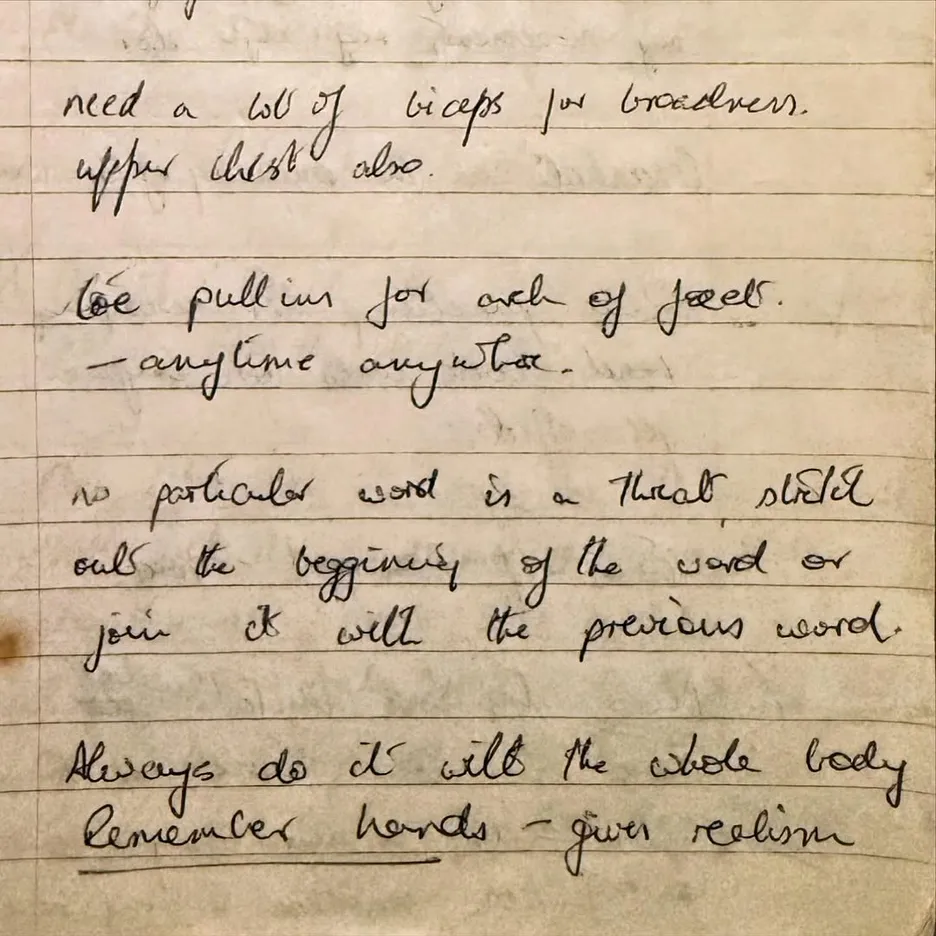 need a lot of biceps for broadness.
upper chest also.
toe pull ins for arch of feet.
– anytime anywhere.
no particular word is a threat, stretch
out the beggining of the word or
join it with the previous word.
Always do it with the whole body
Remember hands – gives realism